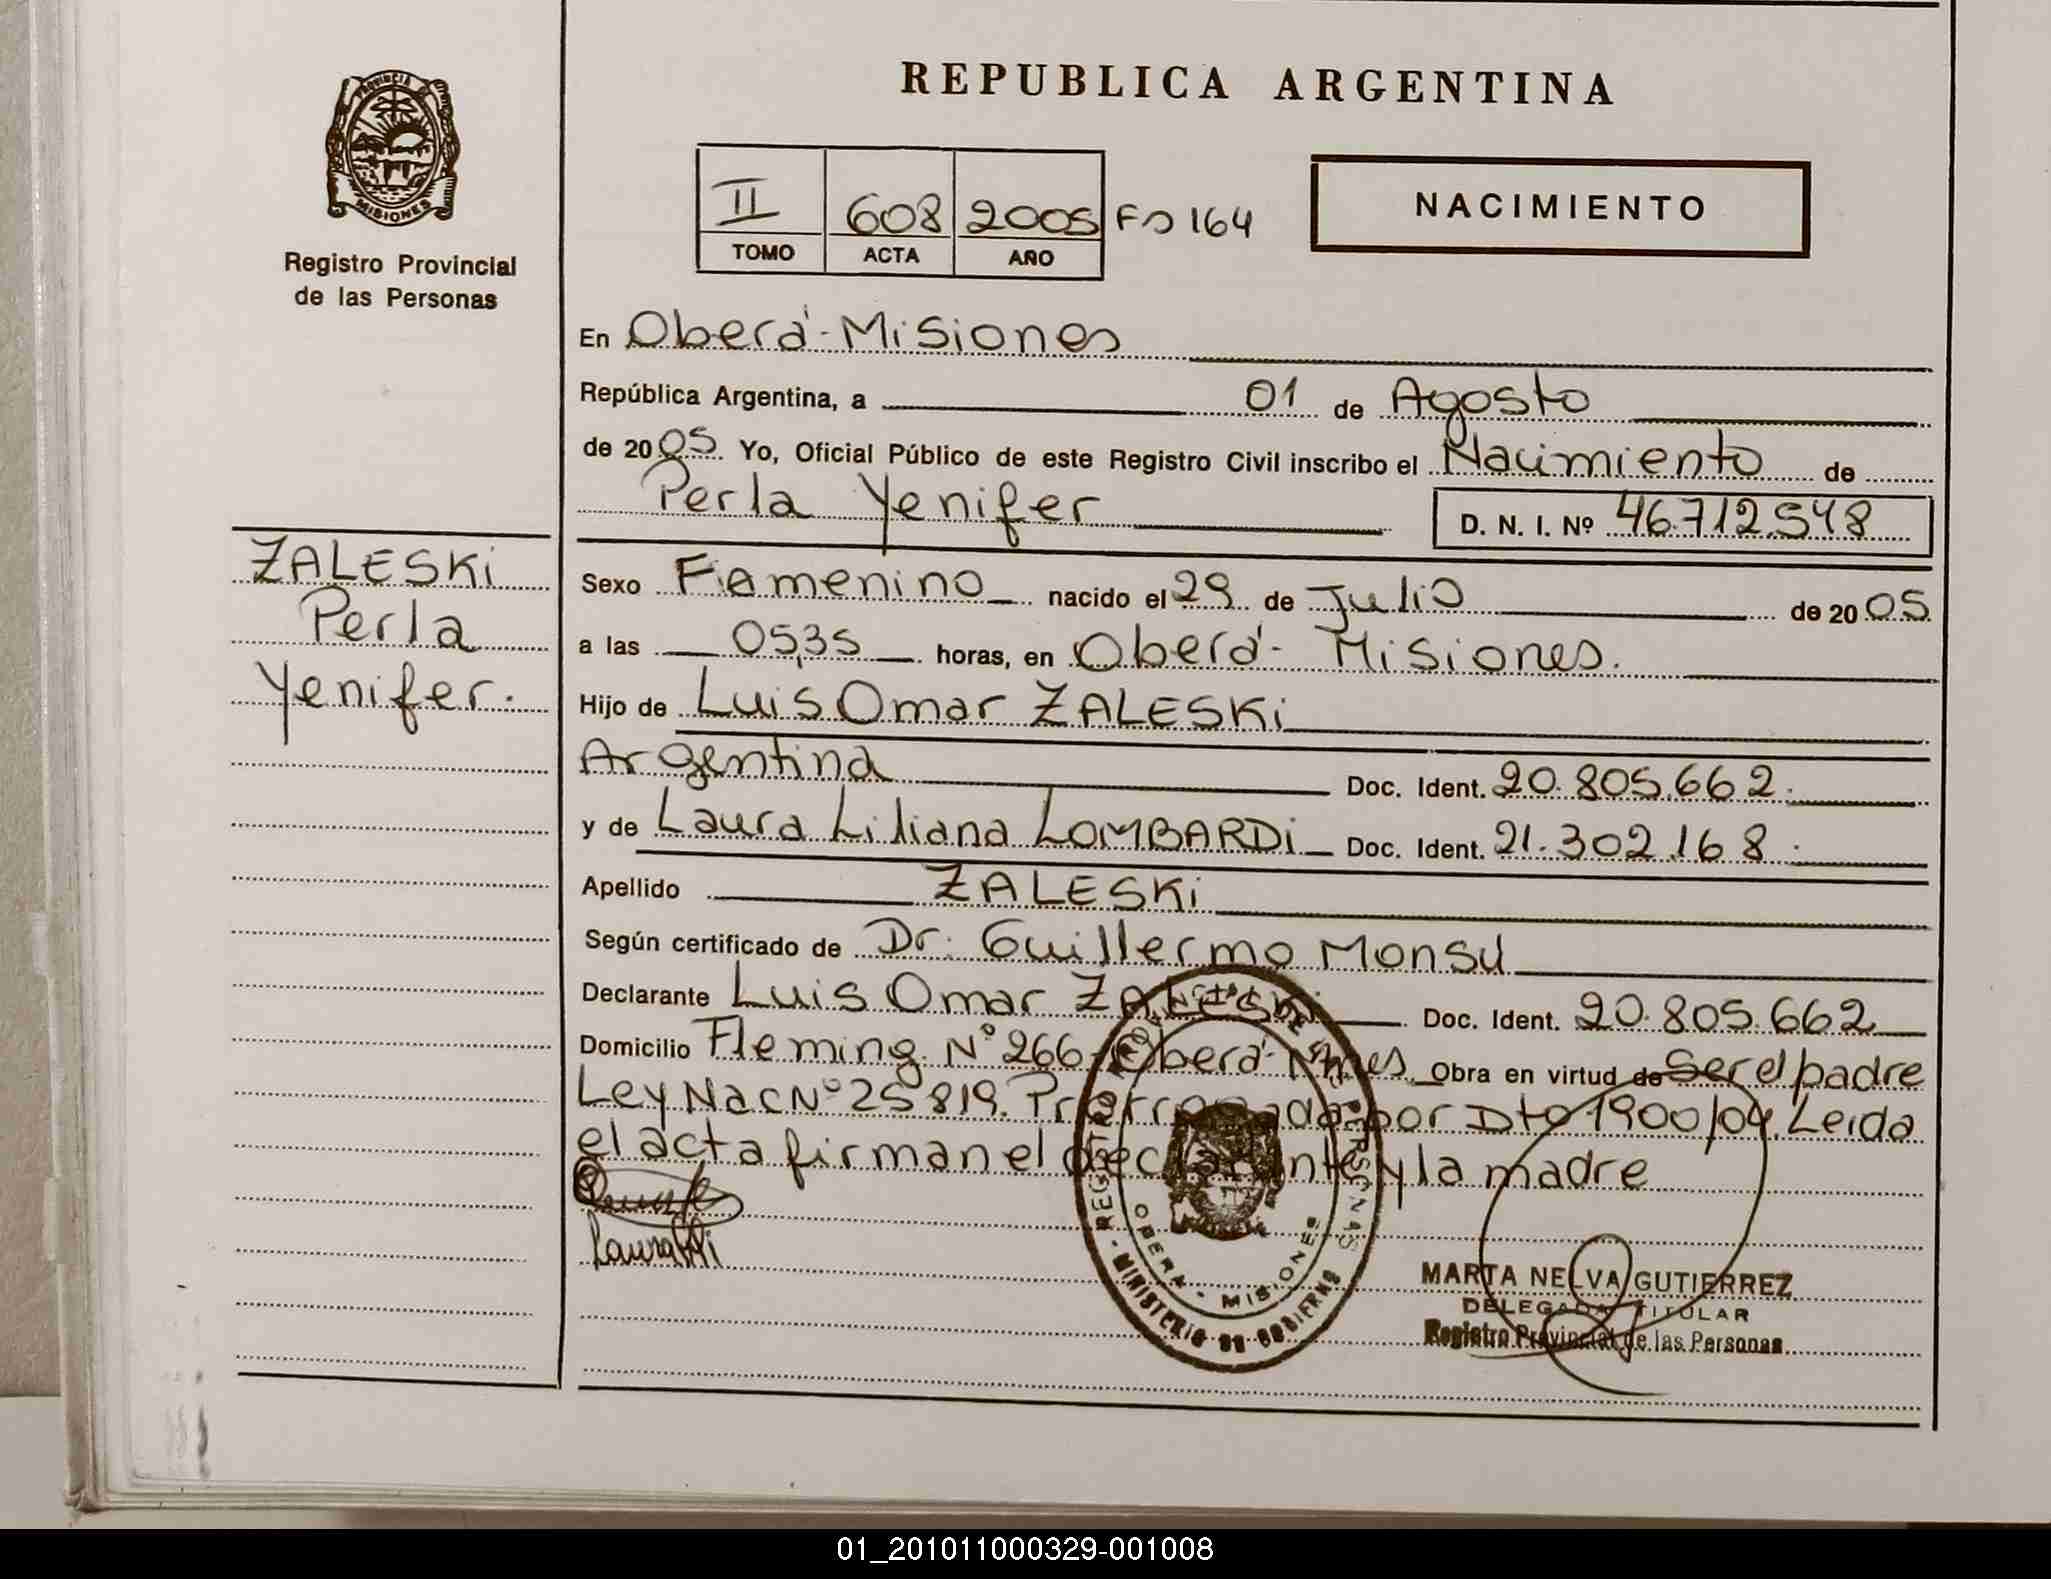 PROVINCIA DE
MISIONES
Registro Provincial
de las Personas
ZALESKi
Perla
Yenifer.
REPUBLICA ARGENTINA
II 608 2005 Fº 164
TOMO ACTA AÑO
NACIMIENTO
En Oberá - Misiones
República Argentina, a 01 de Agosto
de 2005. Yo, Oficial Público de este Registro Civil inscribo el Nacimiento de
Perla Yenifer D. N. I. Nº 46.712.548
Sexo Femenino nacido el 29 de Julio de 2005
a las 05,35 horas, en Oberá - Misiones.
Hijo de Luis Omar ZALESKi
Argentina Doc. Ident. 20.805.662.
y de Laura Liliana LOMBARDi Doc. Ident. 21.302.168.
Apellido ZALESKi
Según certificado de Dr. Guillermo Monsu
Declarante Luis Omar ZALESKi Doc. Ident. 20.805.662
Domicilio Fleming Nº 266 - Oberá - Mnes. Obra en virtud de Ser el padre
Ley Nac Nº 25819. Prorrogada por Dto 1900/04. Leida
el acta firman el declarante y la madre
REGISTRO PROVINCIAL DE LAS PERSONAS
OBERA - MISIONES
- MINISTERIO DE GOBIERNO
MARTA NELVA GUTIERREZ
DELEGADA TITULAR
Registro Provincial de las Personas
01_201011000329-001008